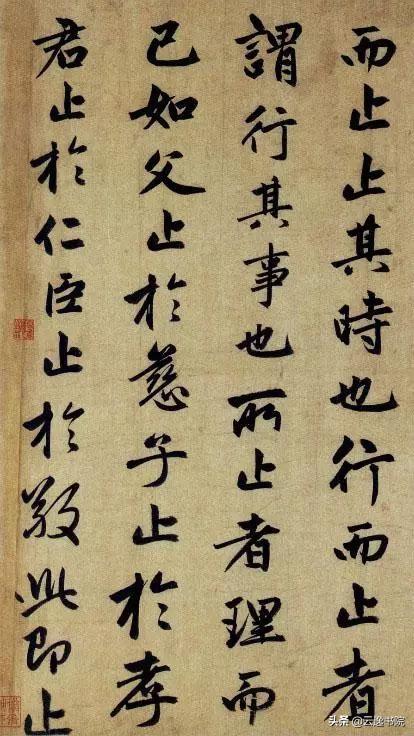 而止止其時也行而止者
謂行其事也所止者理而
已如父止於慈子止於孝
君止於仁臣止於敬此即止
头条@云逸书院